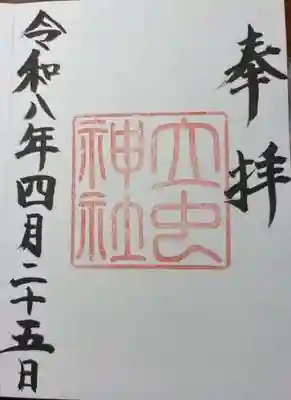 奉拝
大虫
神社
令和八年四月二十五日